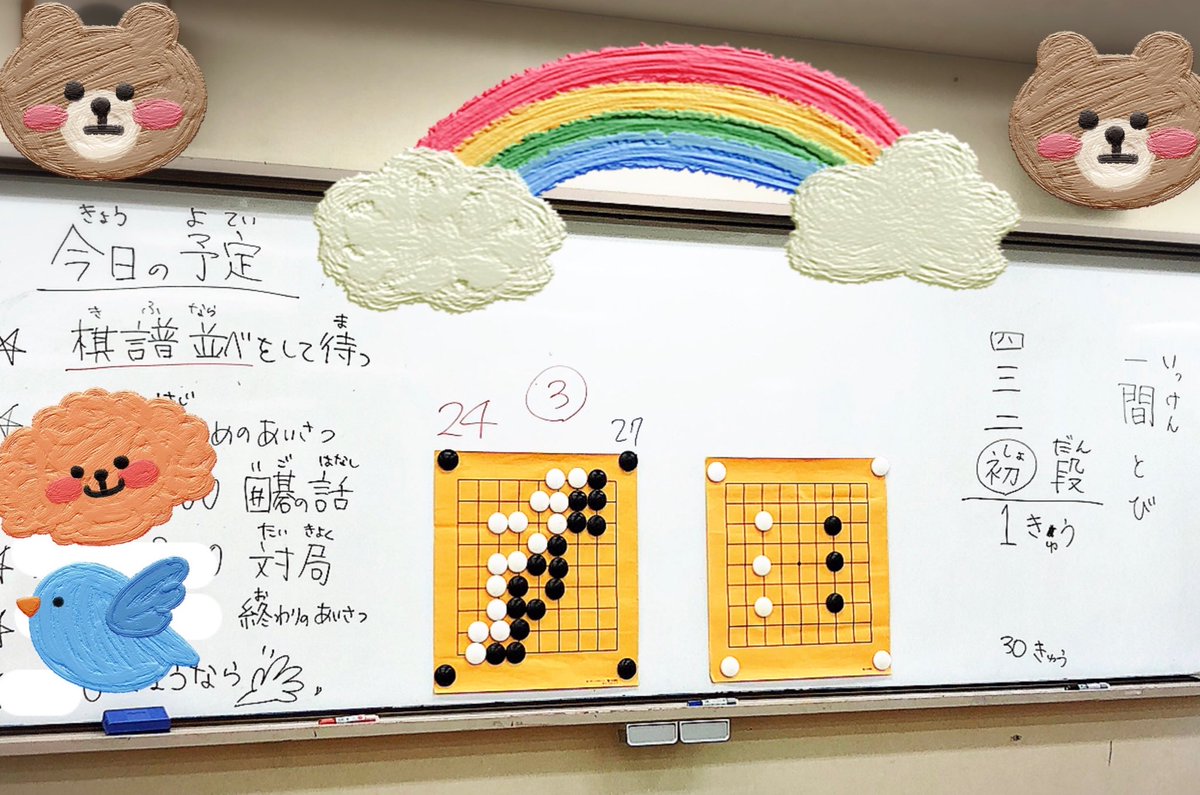 きょう よてい
今日の予定
きふなら ま
棋譜並べをして待つ
はじ
めのあいさつ
いご はなし
囲碁の話
たいきょく
対局
お
終わりのあいさつ
ようなら
24
③
27
四
三
二
しょ だん
初段
1きゅう
30きゅう
いっけん
一間とび